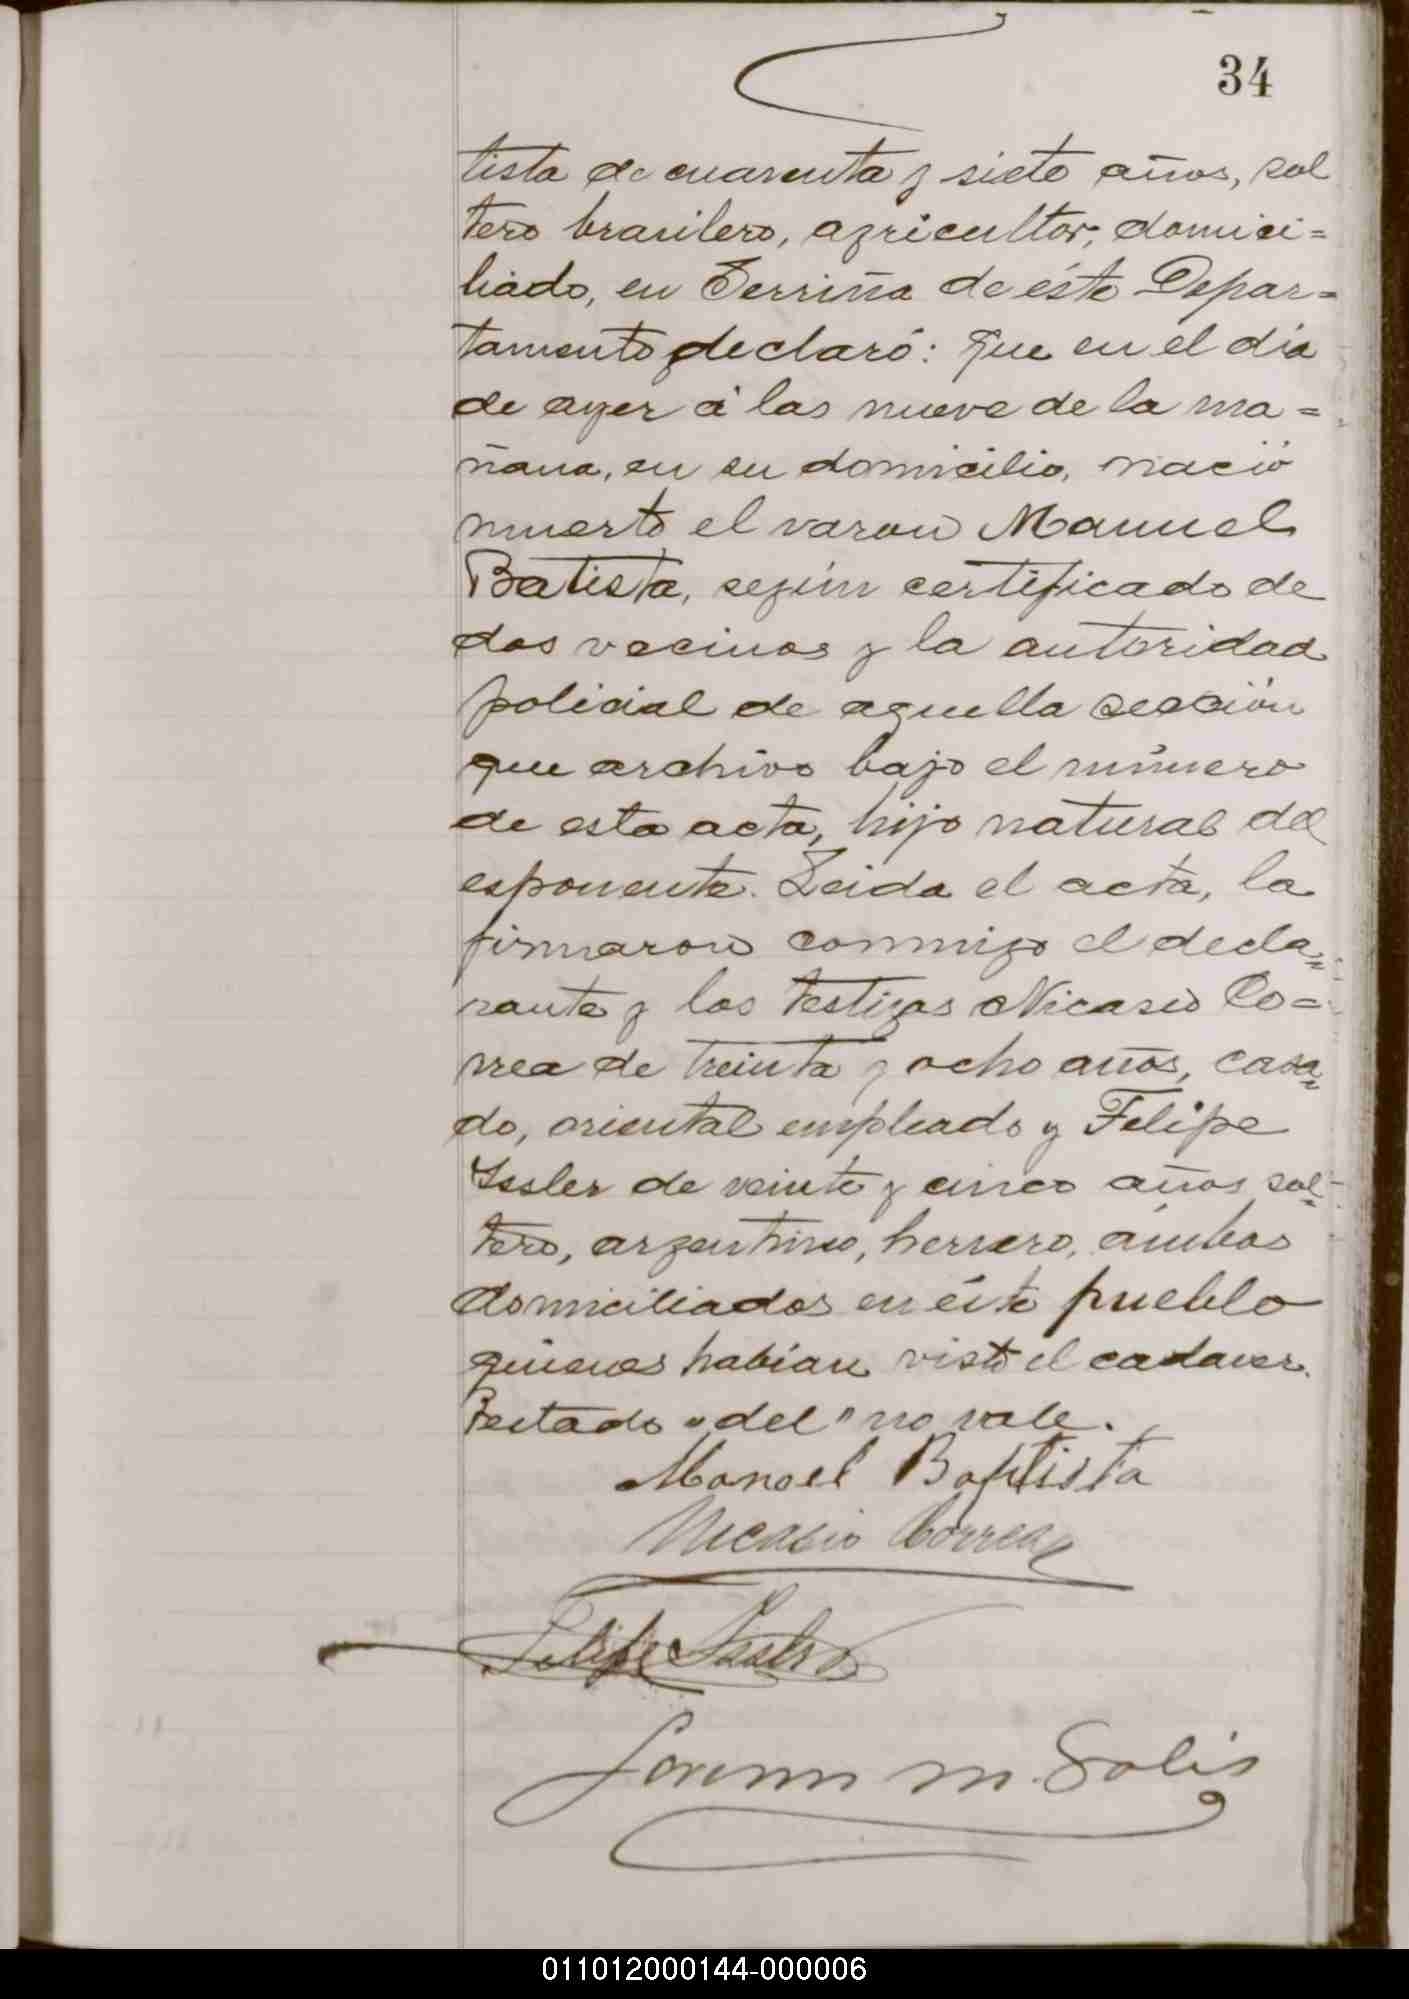 34
tista de cuarenta y siete años, sol
tero brasilero, agricultor, domici=
liado, en Serriña de éste Depar=
tamento declaró: Que en el día
de ayer á las nueve de la ma=
ñana, en su domicilio, nació
muerto el varon Manuel
Batista, según certificado de
dos vecinos y la autoridad
policial de aquella sección
que archivo bajo el número
de esta acta, hijo natural del
esponente. Leida el acta, la
firmaron conmigo el decla=
rante y los testigos Nicasio Co=
rrea de treinta y ocho años, casa=
do, oriental empleado y Felipe
Issler de veinte y cinco años sol=
tero, argentino, herrero, ámbos
domiciliados en éste pueblo
quienes habían visto el cadaver.
Testado "del" no vale.
Manoel Baptista
Nicasio Correa
Felipe Issler
M. Solis
011012000144-000006